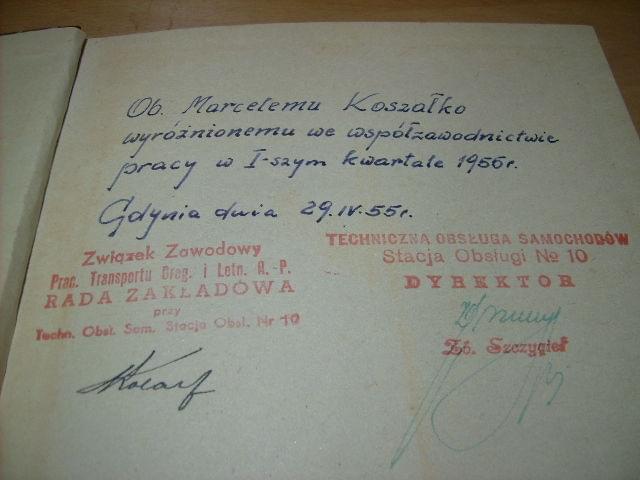 Ob. Marcelemu Koszałko
wyróżnionemu we współzawodnictwie
pracy w I-szym kwartale 1955r.
Gdynia dnia 29.IV.55r.
Związek Zawodowy
Prac. Transportu Drog. i Lotn. R.-P.
RADA ZAKŁADOWA
przy
Techn. Obsł. Sam. Stacja Obsł. Nr 10
TECHNICZNA OBSŁUGA SAMOCHODÓW
Stacja Obsługi № 10
DYREKTOR
Zb. Szczygieł